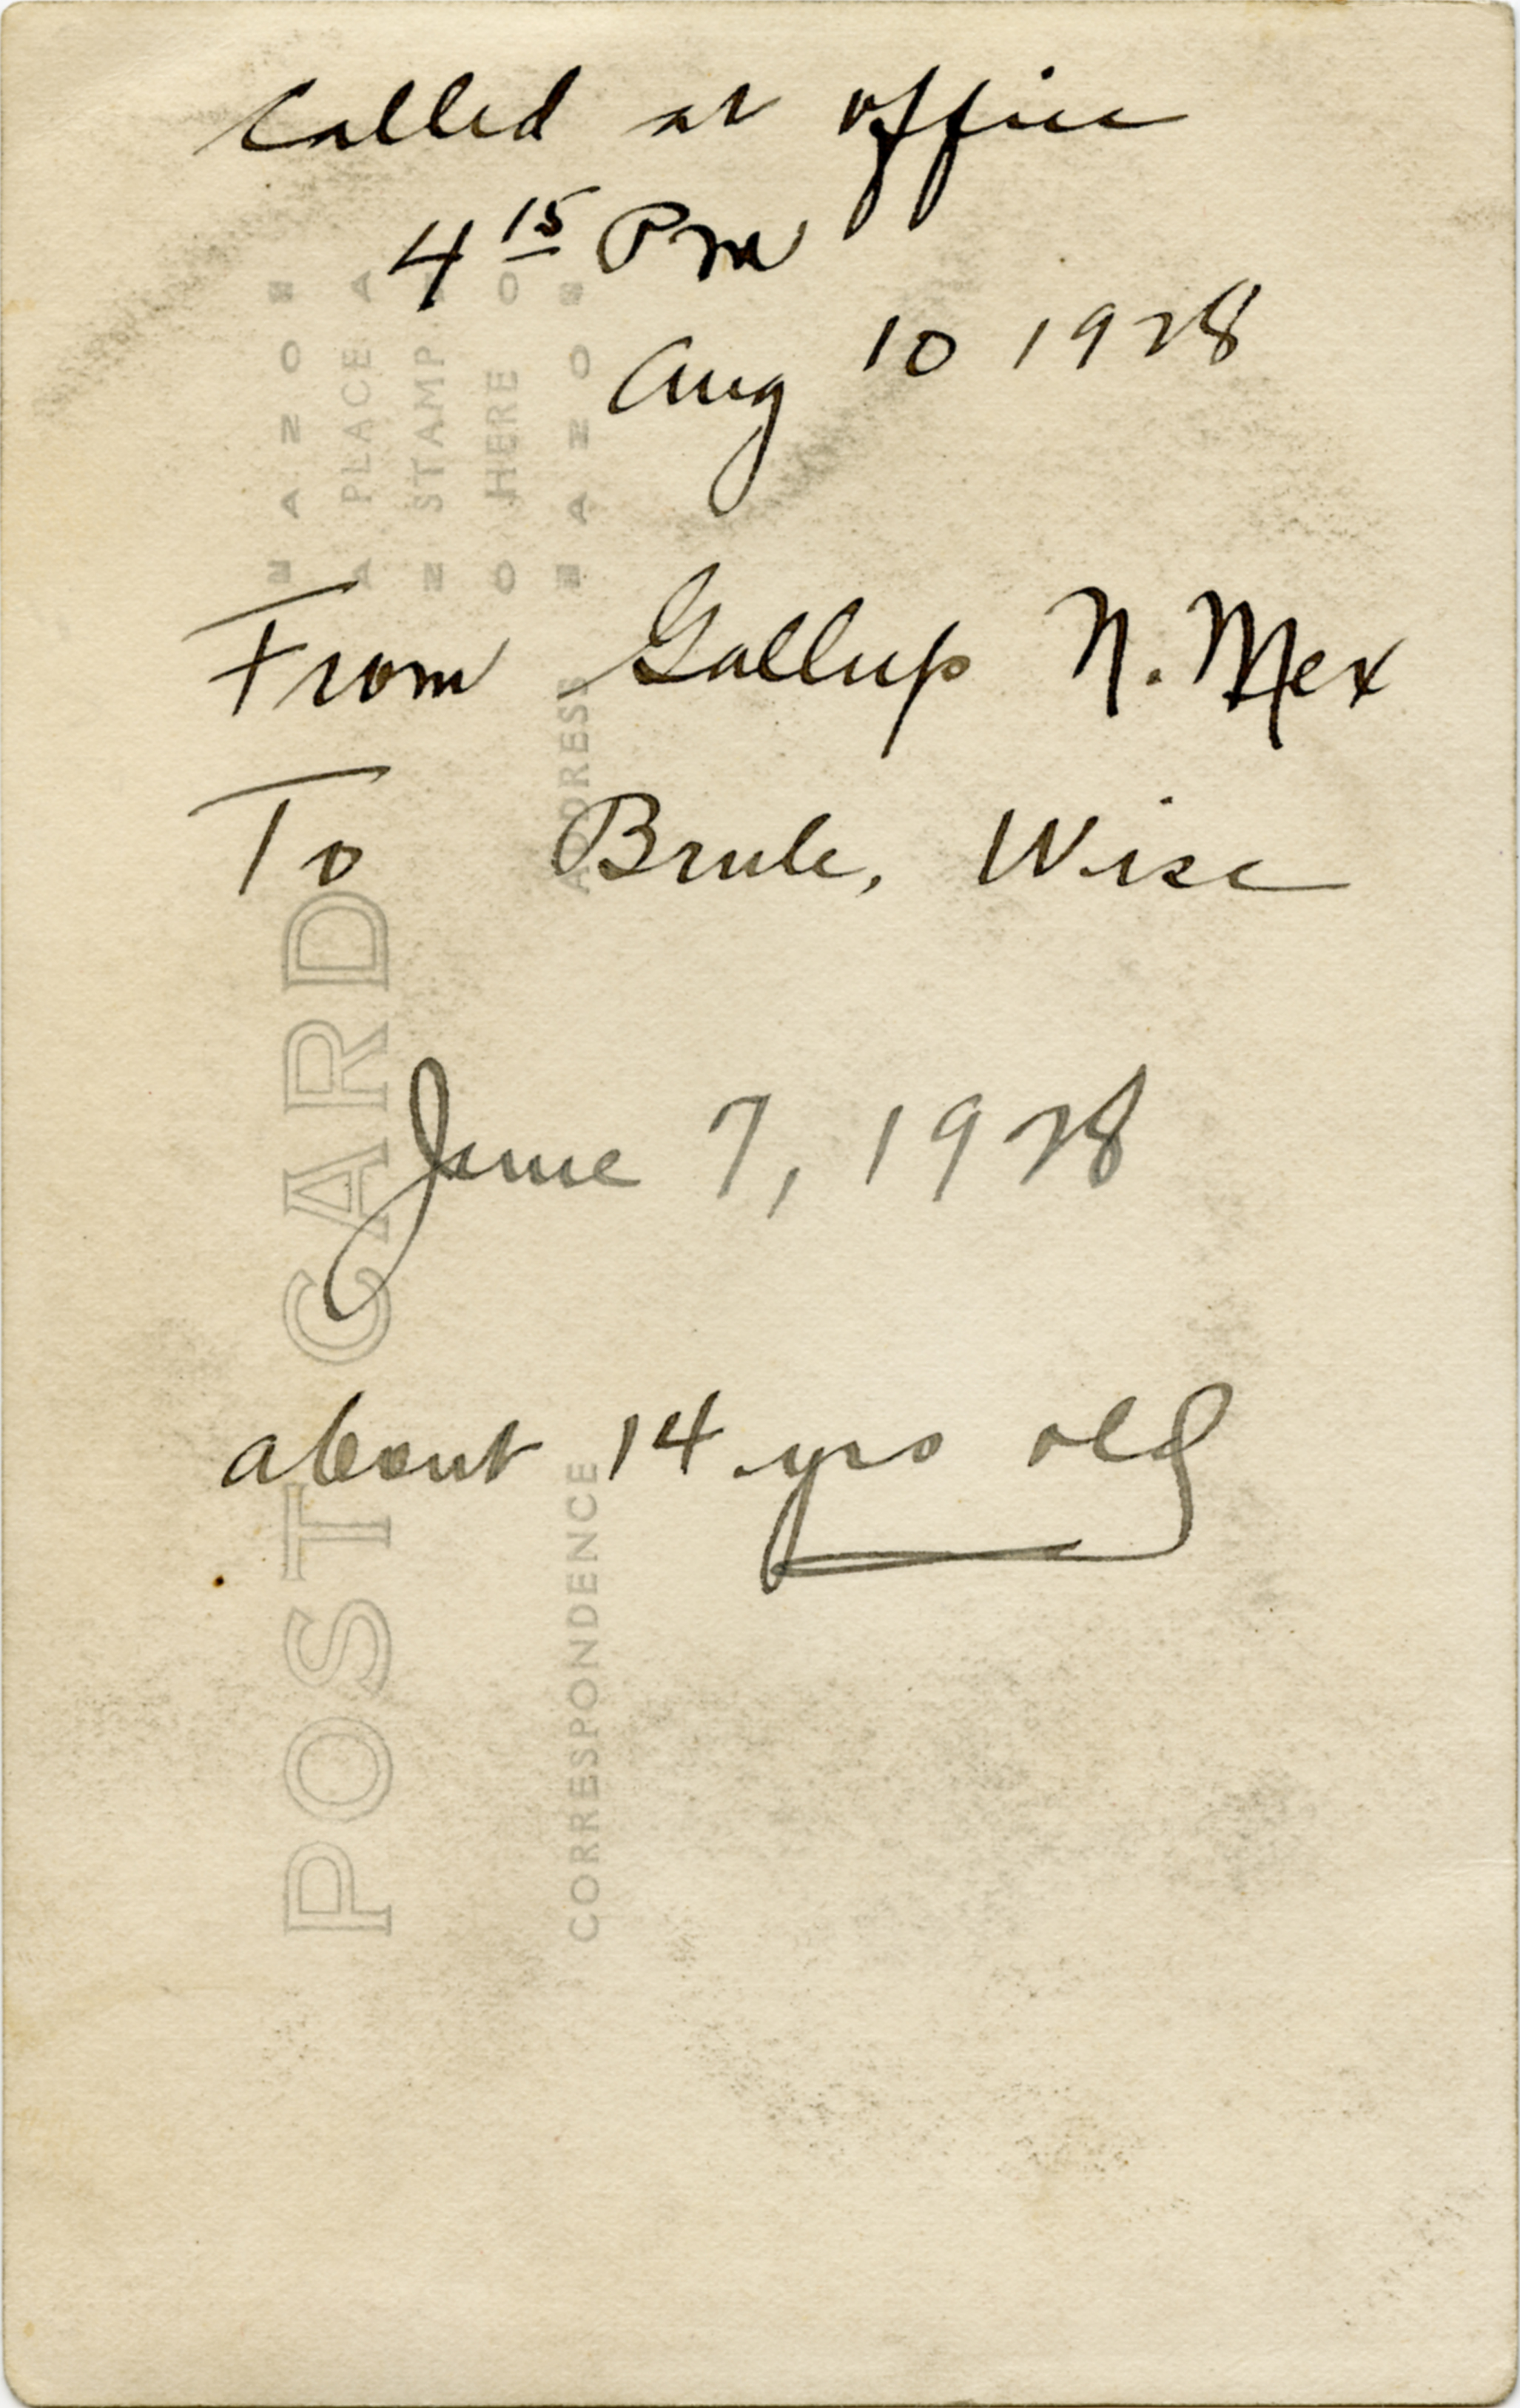 Called at office
4 15 Pm
Aug 10 1928
From Gallup N. Mex
To Brule, Wisc
June 7, 1928
about 14 yrs old
POST CARD
CORRESPONDENCE
ADDRESS
PLACE
STAMP
HERE